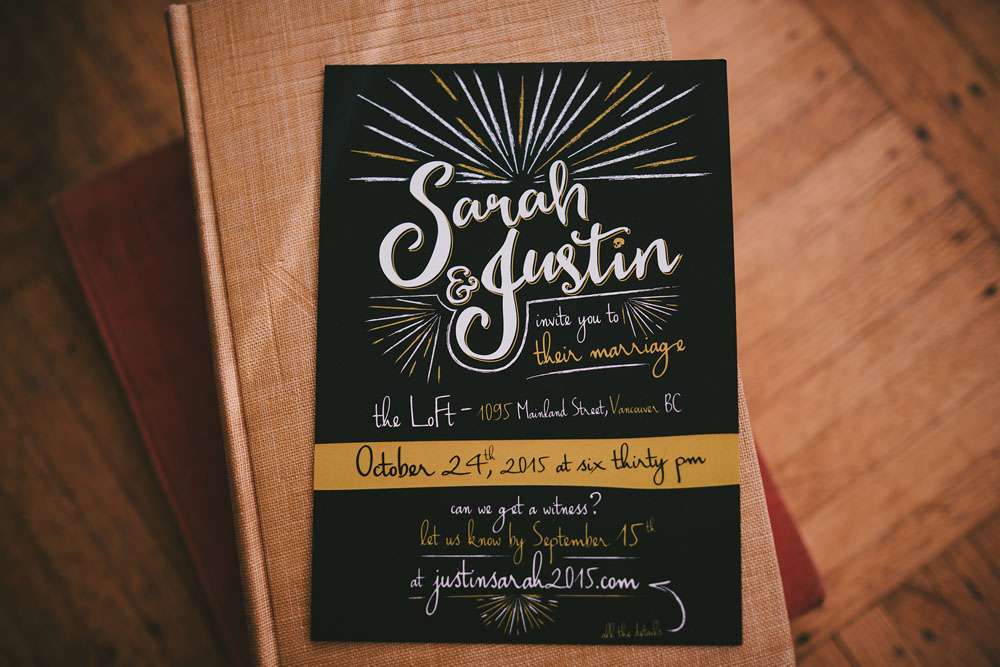 Sarah
& Justin
invite you to
their marriage
the Loft - 1095 Mainland Street, Vancouver BC
October 24th, 2015 at six thirty pm
can we get a witness?
let us know by September 15th
at justinsarah2015.com
all the details